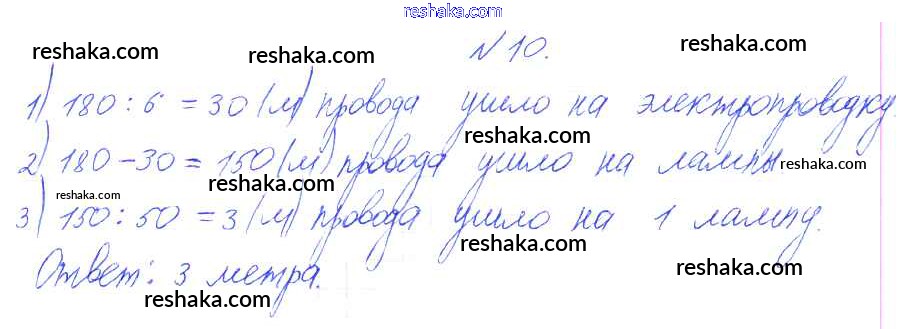 reshaka.com
reshaka.com reshaka.com № 10. reshaka.com
1) 180 : 6 = 30 (м) провода ушло на электропроводку.
reshaka.com
2) 180 - 30 = 150 (м) провода ушло на лампы
reshaka.com reshaka.com reshaka.com
3) 150 : 50 = 3 (м) провода ушло на 1 лампу.
reshaka.com
Ответ: 3 метра.
reshaka.com reshaka.com